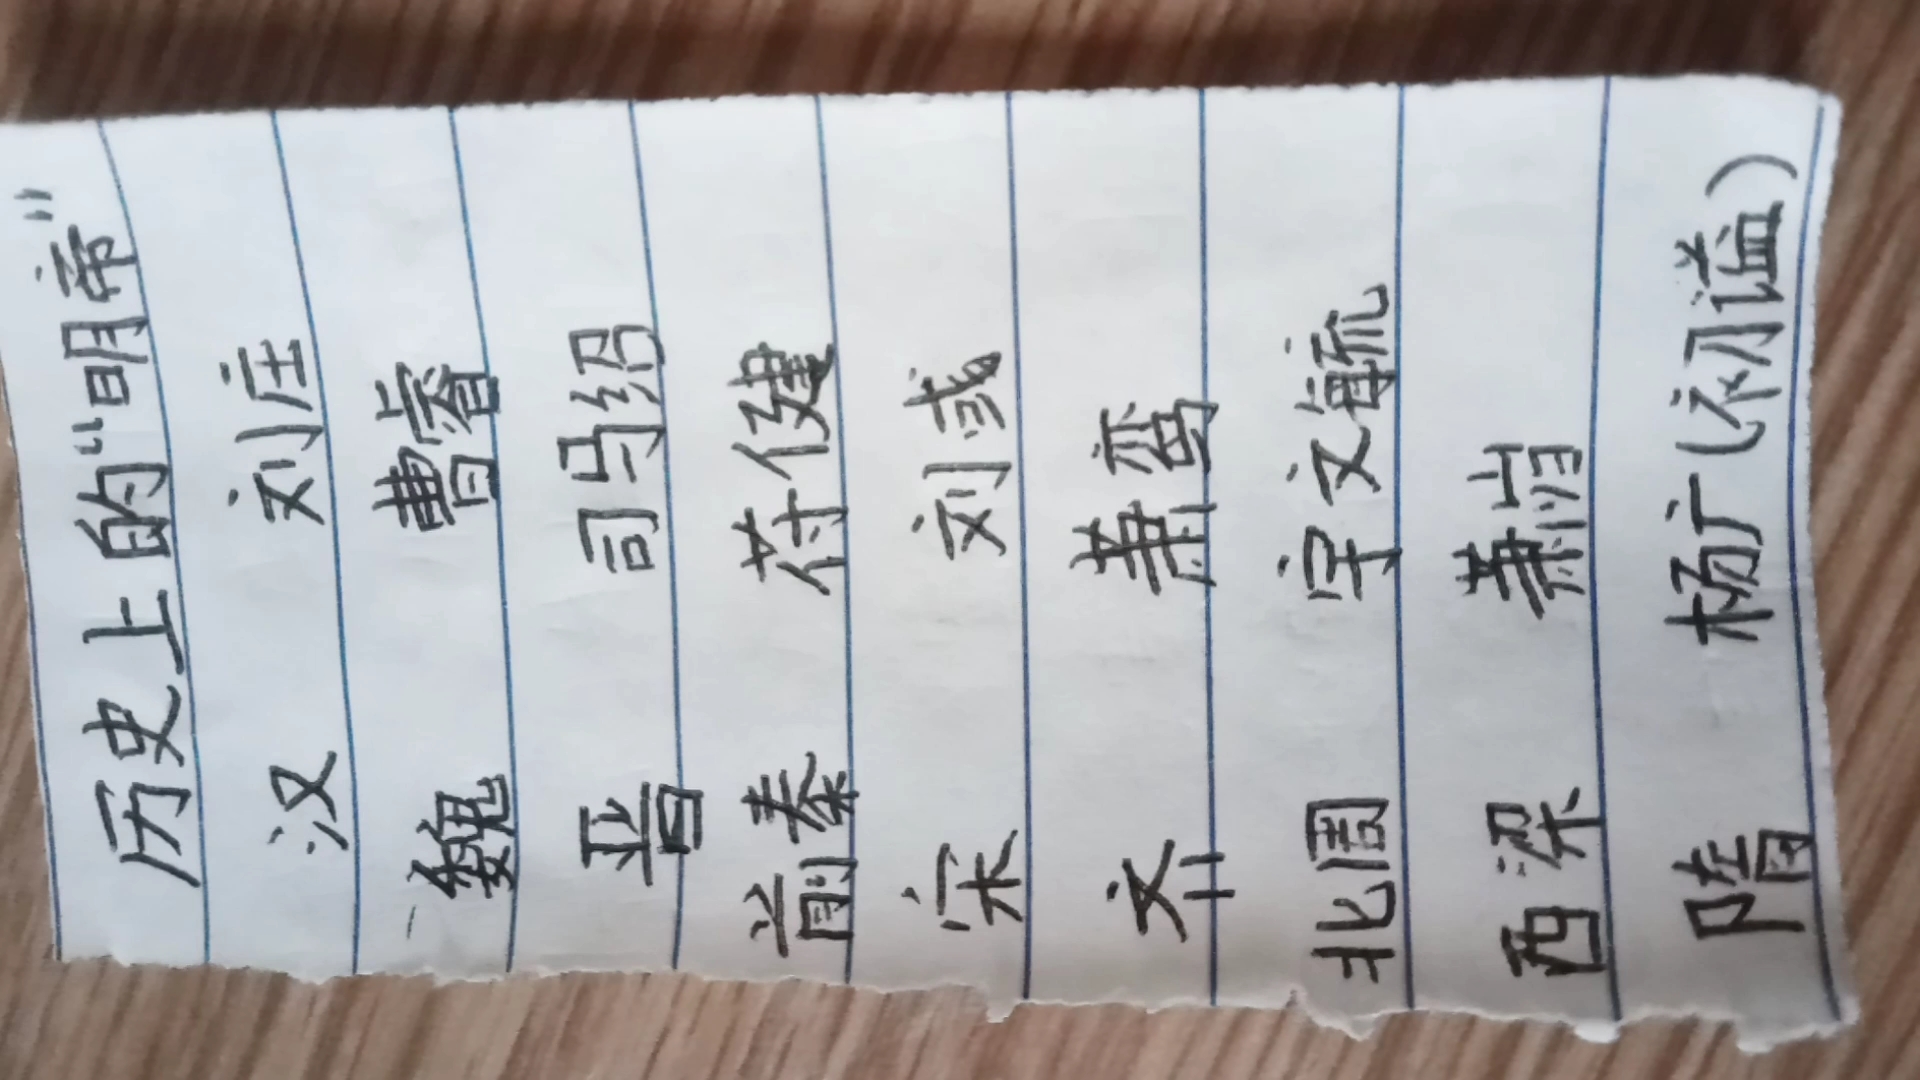 历史上的“明帝”
汉 刘庄
魏 曹睿
晋 司马绍
前秦 苻健
宋 刘彧
齐 萧鸾
北周 宇文毓
西梁 萧岿
隋 杨广(初谥)